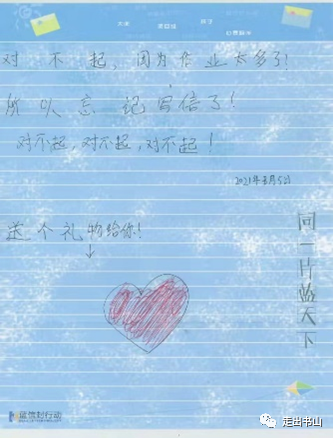 对不起，因为作业太多了！
所以忘记写信了！
对不起，对不起，对不起！
2021年5月5日
送个礼物给你！
同一片蓝天下
蓝信封行动
走出书山